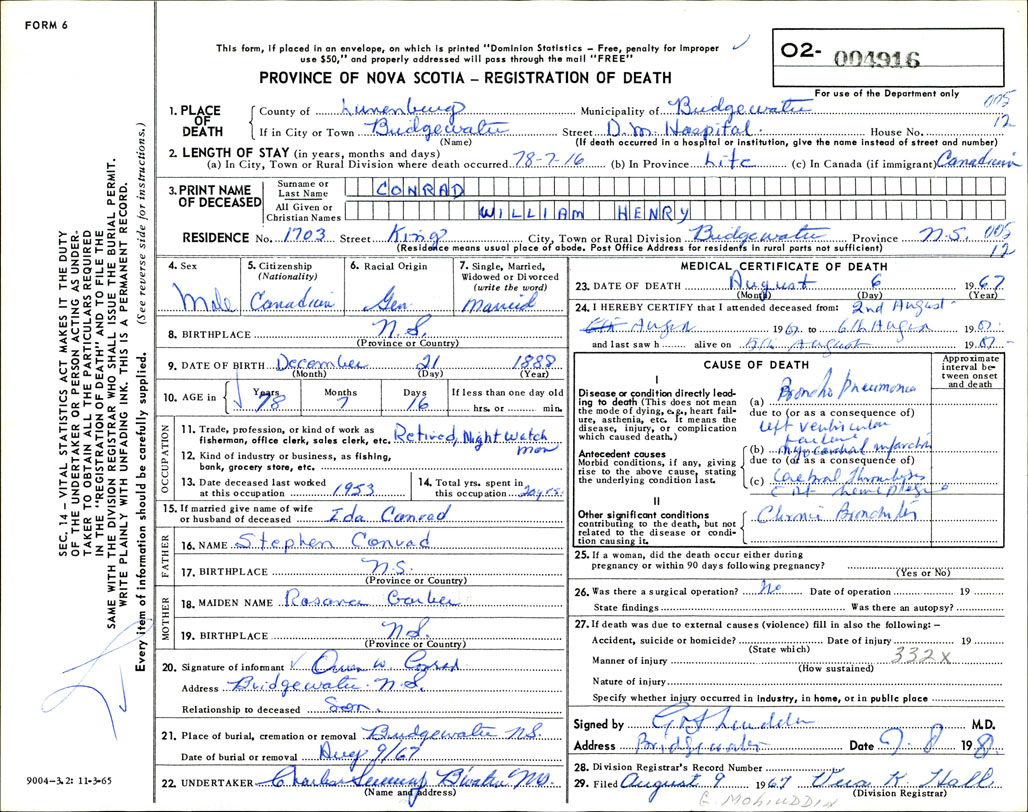 FORM 6
This form, if placed in an envelope, on which is printed "Dominion Statistics – Free, penalty for improper
use $50," and properly addressed will pass through the mail "FREE"
PROVINCE OF NOVA SCOTIA – REGISTRATION OF DEATH
02- 004916
For use of the Department only
005
12
1. PLACE OF DEATH
County of Lunenburg Municipality of Bridgewater
If in City or Town Bridgewater Street D.M. Hospital House No.
(Name) (If death occurred in a hospital or institution, give the name instead of street and number)
2. LENGTH OF STAY (in years, months and days)
(a) In City, Town or Rural Division where death occurred 78-7-16 (b) In Province Life (c) In Canada (if immigrant) Canadian
3. PRINT NAME OF DECEASED
Surname or Last Name CONRAD
All Given or Christian Names WILLIAM HENRY
RESIDENCE No. 1703 Street King City, Town or Rural Division Bridgewater Province N.S. 005
(Residence means usual place of abode. Post Office Address for residents in rural parts not sufficient) 12
4. Sex Male
5. Citizenship (Nationality) Canadian
6. Racial Origin Ger.
7. Single, Married, Widowed or Divorced (write the word) Married
8. BIRTHPLACE N.S.
(Province or Country)
9. DATE OF BIRTH December 21 1888
(Month) (Day) (Year)
10. AGE in Years 78 Months 7 Days 16 If less than one day old hrs. or min.
OCCUPATION
11. Trade, profession, or kind of work as
fisherman, office clerk, sales clerk, etc. Retired Night Watch man
12. Kind of industry or business, as fishing,
bank, grocery store, etc.
13. Date deceased last worked
at this occupation 1953
14. Total yrs. spent in
this occupation yrs.
15. If married give name of wife
or husband of deceased Ida Conrad
FATHER
16. NAME Stephen Conrad
17. BIRTHPLACE N.S.
(Province or Country)
MOTHER
18. MAIDEN NAME
19. BIRTHPLACE N.S.
(Province or Country)
20. Signature of informant Owen W. Conrad
Address Bridgewater N.S.
Relationship to deceased Son.
21. Place of burial, cremation or removal Bridgewater N.S.
Date of burial or removal Aug 9/67
22. UNDERTAKER Charles B'water N.S.
(Name and address)
MEDICAL CERTIFICATE OF DEATH
23. DATE OF DEATH August 6 1967
(Month) (Day) (Year)
24. I HEREBY CERTIFY that I attended deceased from: 2nd August
19 to 6th 19
and last saw h alive on August 19
CAUSE OF DEATH
Approximate interval between onset and death
I
Disease or condition directly leading to death (This does not mean
the mode of dying, e.g., heart failure, asthenia, etc. It means the
disease, injury, or complication
which caused death.)
(a) Broncho Pneumonia
due to (or as a consequence of)
left ventricular failure
Antecedent causes
Morbid conditions, if any, giving
rise to the above cause, stating
the underlying condition last.
(b) myocardial infarction
due to (or as a consequence of)
(c) Cerebral Thrombosis
hemiplegia
II
Other significant conditions
contributing to the death, but not
related to the disease or condition causing it.
Chronic Bronchitis
25. If a woman, did the death occur either during
pregnancy or within 90 days following pregnancy?
(Yes or No)
26. Was there a surgical operation? No Date of operation 19
State findings Was there an autopsy?
27. If death was due to external causes (violence) fill in also the following: –
Accident, suicide or homicide? Date of injury 19
(State which)
Manner of injury 332X
(How sustained)
Nature of injury
Specify whether injury occurred in industry, in home, or in public place
Signed by M.D.
Address Bridgewater Date 7.8 19
28. Division Registrar's Record Number
29. Filed August 9 1967 Vera K. Hall
(Division Registrar)
E. MOHIUDDIN
SEC. 14 – VITAL STATISTICS ACT MAKES IT THE DUTY
OF THE UNDERTAKER OR PERSON ACTING AS UNDER-
TAKER TO OBTAIN ALL THE PARTICULARS REQUIRED
IN THE "REGISTRATION OF DEATH" AND TO FILE THE
SAME WITH THE DIVISION REGISTRAR WHO SHALL ISSUE THE BURIAL PERMIT.
WRITE PLAINLY WITH UNFADING INK. THIS IS A PERMANENT RECORD.
Every item of information should be carefully supplied. (See reverse side for instructions.)
9004-3.2: 11-3-65